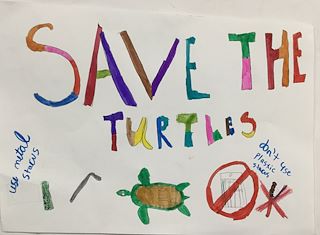 SAVE THE
TURTLES
use metal
stacus
don't use
plastic
stacus